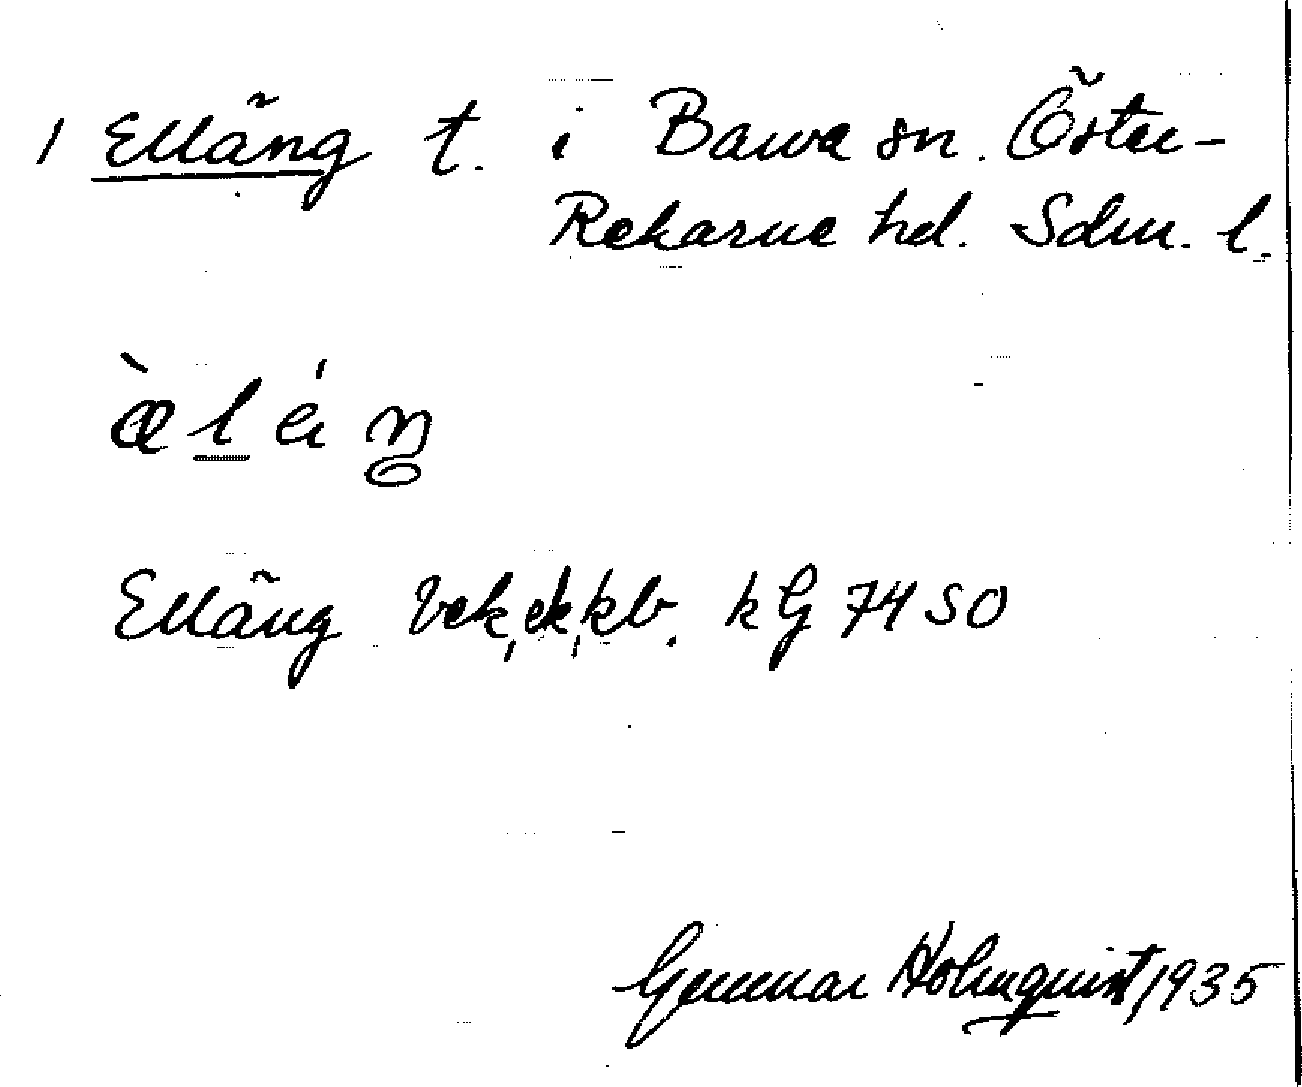 1 Elläng t. i Barva sn. Öster-
Rekarne hd. Sdm. l.
Elläng vek, ek, kb. kG 74 SO
Gunnar Holmquist, 1935